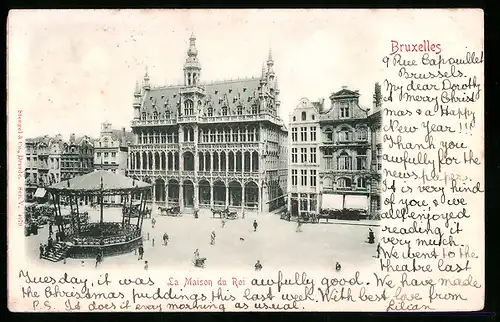 Bruxelles
9 Rue Capouillet
Brussels.
My dear Dorothy
A Merry Christ
mas & a Happy
New Year!!!
Thank you
awfully for the
newspaper.
It is very kind
of you, & we
all enjoyed
reading it
very much.
We went to the
theatre last
Tuesday, it was awfully good. We have made
La Maison du Roi
the Christmas puddings this last week. With best love from
P.S. It does it every morning as usual. Lilian
Stengel & Co., Dresden